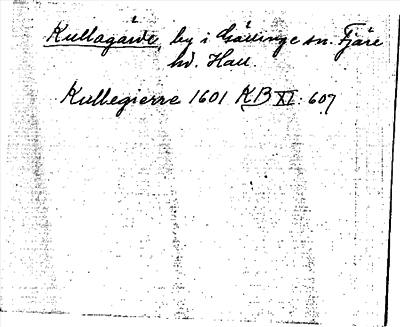 Kullagärde, by i Gällinge sn. Fjäre
hd. Hall.
Kullegierre 1601 KB XI: 607